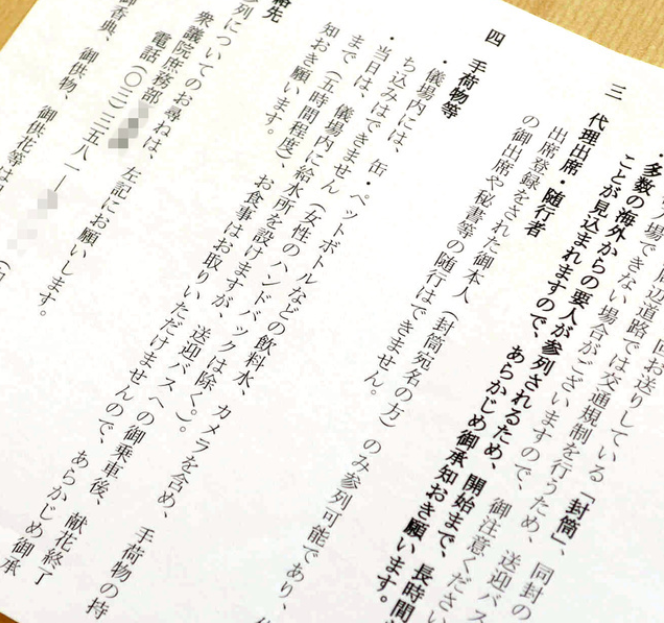 回お送りしている「封筒」、同封の
辺道路では交通規制を行うため、送迎バス
入場できない場合がございますので、御注意ください
・多数の海外からの要人が参列されるため、開始まで、長時間
ことが見込まれますので、あらかじめ御承知おき願います。
三 代理出席・随行者
出席登録をされた御本人（封筒宛名の方）のみ参列可能であり、
の御出席や秘書等の随行はできません。
四 手荷物等
・儀場内には、缶・ペットボトルなどの飲料水、カメラを含め、手荷物の持
ち込みはできません（女性のハンドバックは除く。）。
・当日は、儀場内に給水所を設けますが、送迎バスへの御乗車後、献花終了
まで（五時間程度）、お食事はお取りいただけませんので、あらかじめ御承
知おき願います。
絡先
列についてのお尋ねは、左記にお願いします。
衆議院庶務部
電話（〇三）三五八一―
御香典、御供物、御供花等は